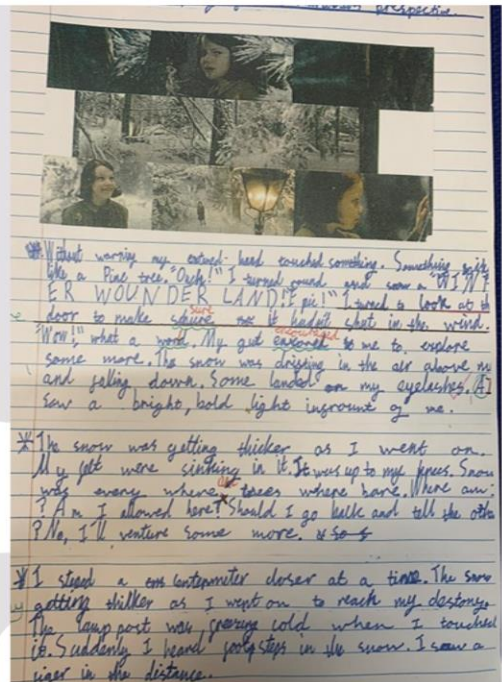 perspective.
Without warning my extued-head touched something. Something
like a Pine tree. "Ouch!" I turned round and saw a "WINT
ER WOUNDER LAND! Epic!" I turned to look at th
sure
door to make it hadn't shut in the wind.
"Wow!" what a word. My gut to me to explore
encouraged
some more. The snow was drifting in the air above m
and falling down. Some landed on my eyelashes. I
saw a bright, bold light infrount of me.
The snow was getting thicker as I went on.
My feet were sinking in it. It was up to my knees. Snow
was every where trees where bare. Where am
? Am I allowed here? Should I go back and tell the othe
? No, I'll venture some more.
I steped a centermeter closer at a time. The snow
getting thilker as I went on to reach my destony.
The lamp post was freezing cold when I touched
it. Suddenly I heard footsteps in the snow. I saw a
iger in the distance.